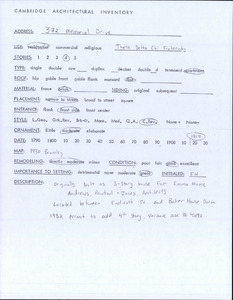 CAMBRIDGE ARCHITECTURAL INVENTORY
ADDRESS: 372 Memorial Drive
USE: residential commercial religious Theta Delta Chi Fraternity
STORIES: 1 2 3 4 5
TYPE: single double row duplex decker double d tenement apartment
ROOF: hip gable front gable flank mansard flat
MATERIAL: frame SIDING: original subsequent
PLACEMENT: narrow to street broad to street square
ENTRANCE: flank front side center
STYLE: L.Geo, Grk.Rev, Brk-It, Mans, Med, Q.A, None+ None-
ORNAMENT: little moderate elaborate
DATE: 1790 1810 30 40 50 60 70 80 90 1900 10 20 30
MAP: 1930 Bromley
REMODELING: drastic moderate minor CONDITION: poor fair good excellent
IMPORTANCE TO SETTING: detrimental neer moderate great INITIALED:
DESCRIPTION: Originally built as 3-story house for
Andrews, + Jones, Architects
Located between Endicott St. and Baker House Dorm
1952 permit to add 4th story. Variance